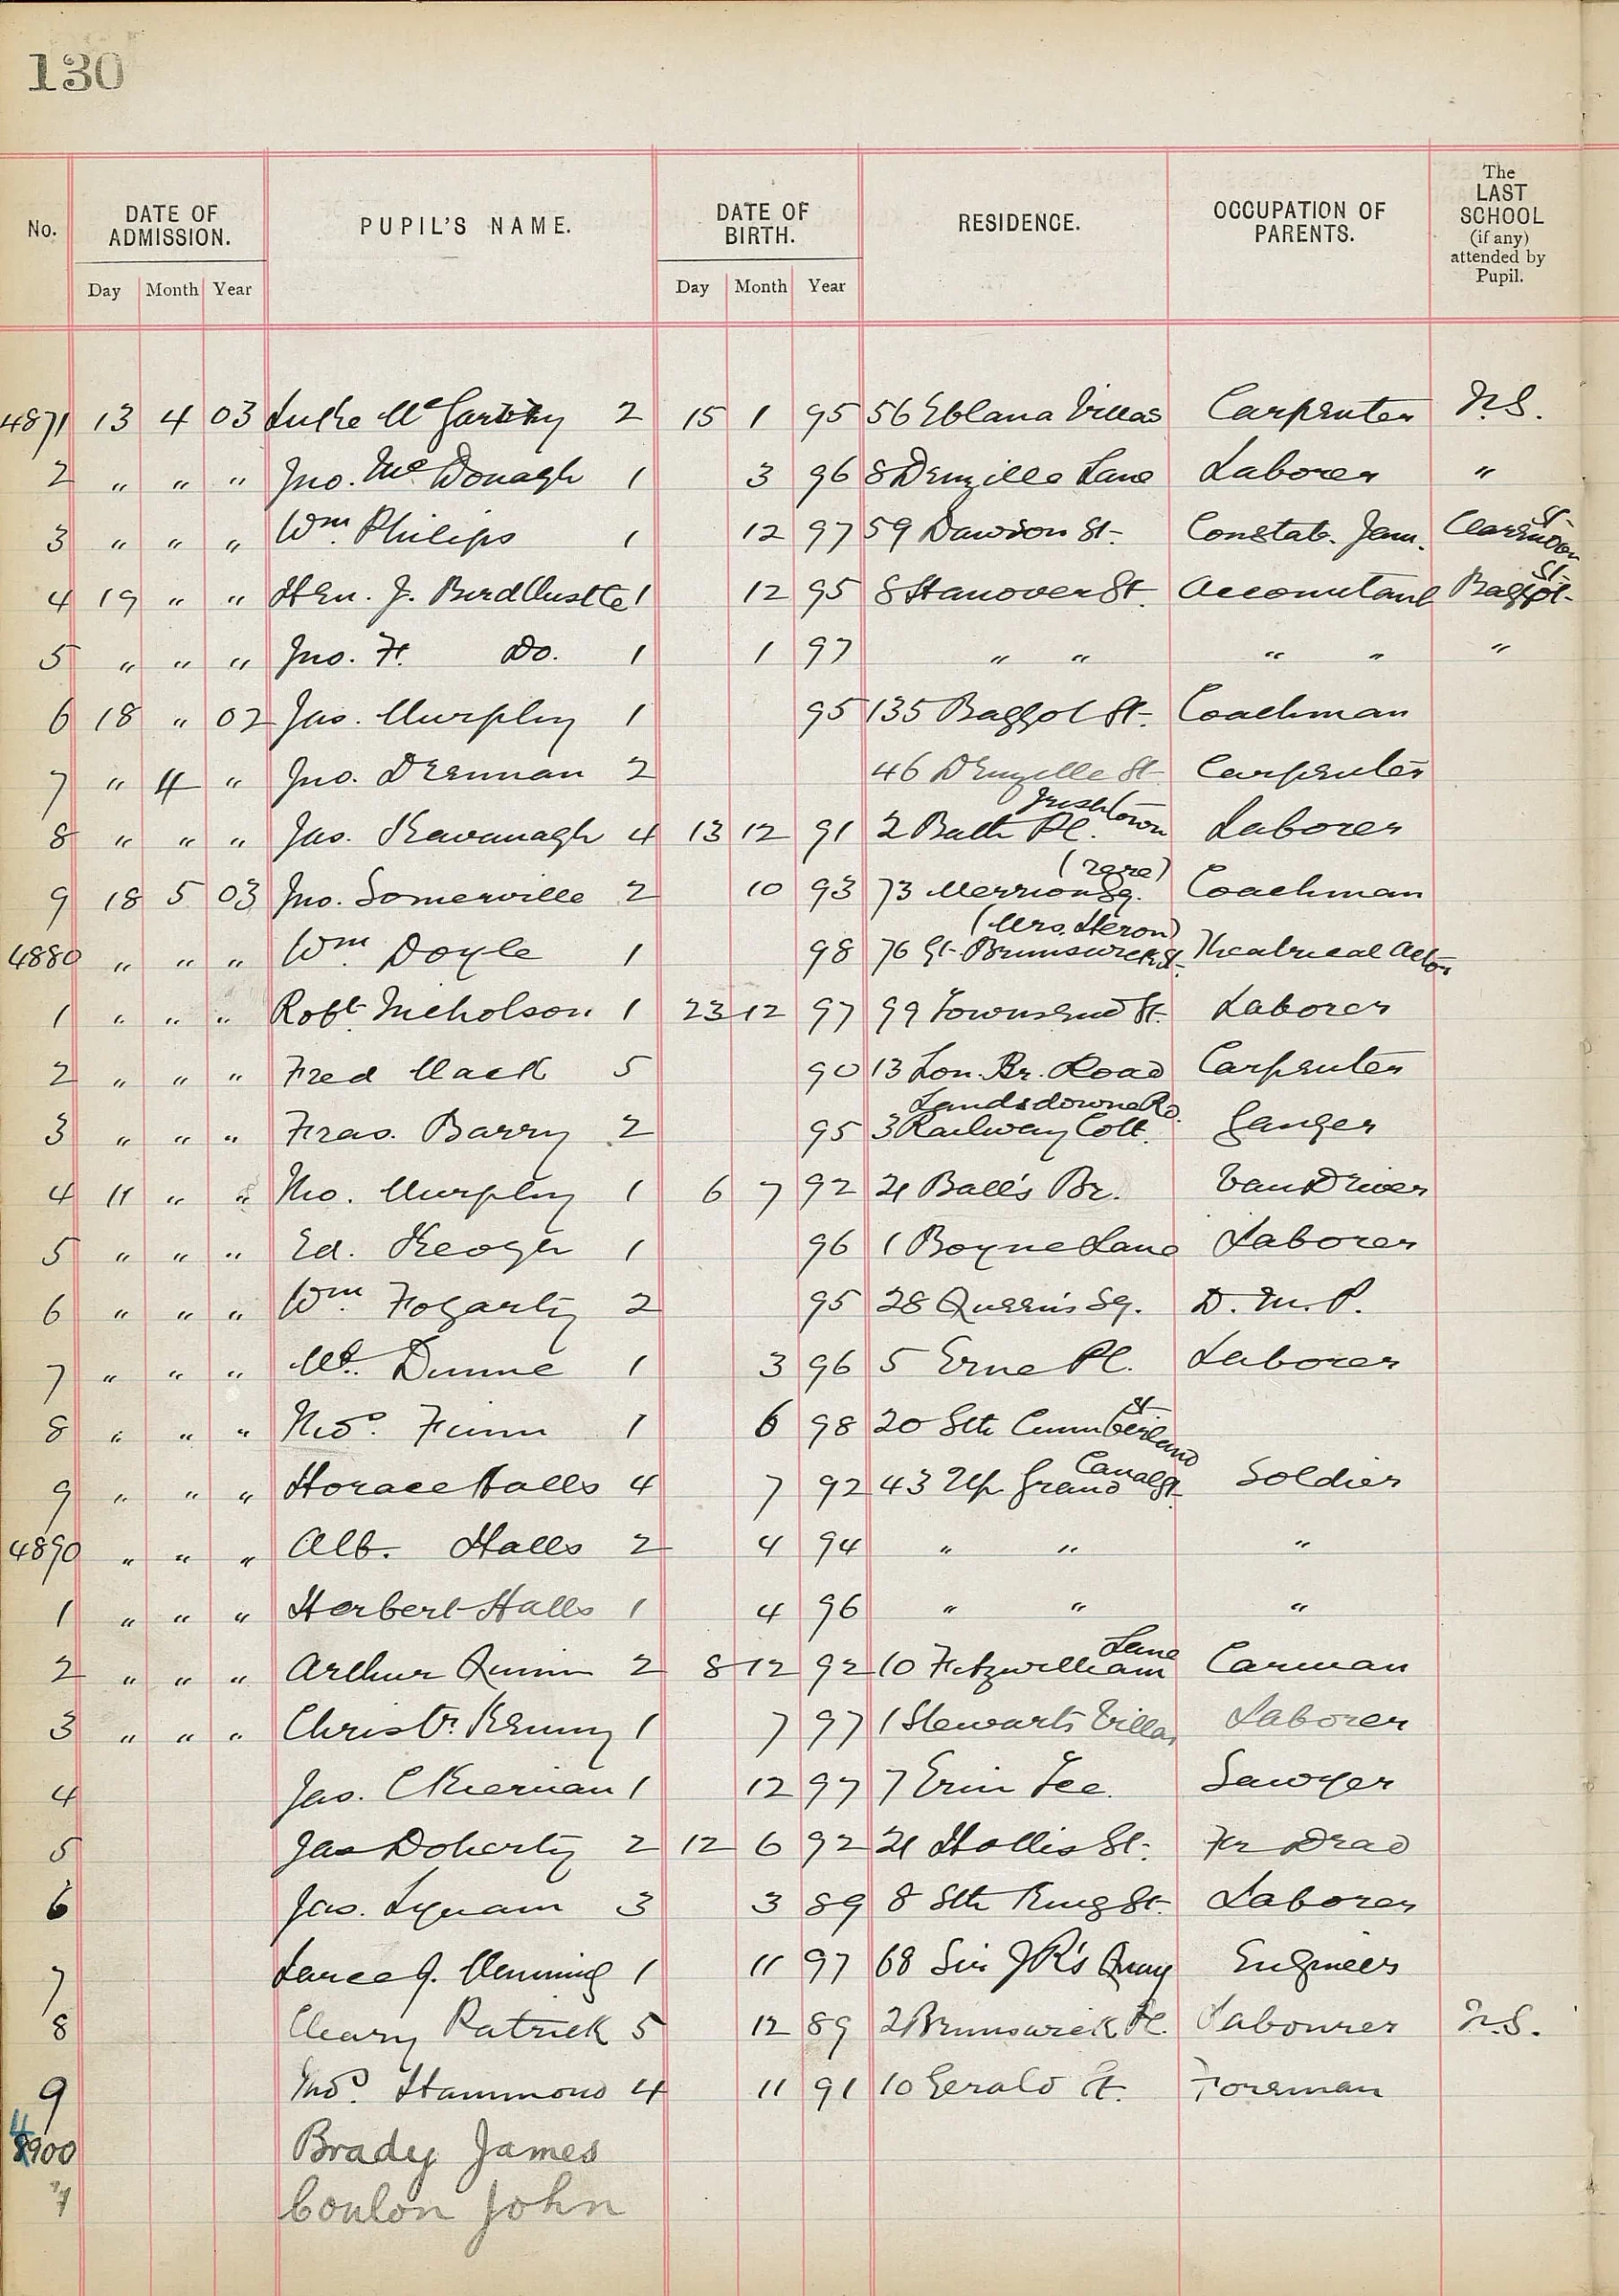 130
No. DATE OF ADMISSION. PUPIL'S NAME. DATE OF BIRTH. RESIDENCE. OCCUPATION OF PARENTS. The LAST SCHOOL (if any) attended by Pupil.
Day Month Year Day Month Year
4871 13 4 03 Luke McGarthy 2 15 1 95 56 Eblana Villas Carpenter N.S.
2 " " " Jno. McDonagh 1 3 96 8 Denzille Lane Laborer "
3 " " " Wm Philips 1 12 97 59 Dawson St. Constab. Jam. Clarendon St.
4 19 " " Hen. J. 1 12 95 8 Hanover St. Accountant Baggot St.
5 " " " Jno. F. Do. 1 1 97 " " " " "
6 18 " 02 Jas. Murphy 1 95 135 Baggot St. Coachman
7 " 4 " Jno. Drennan 2 46 Denzille St Carpenter
8 " " " Jas. Kavanagh 4 13 12 91 2 Bath Pl. Irishtown Laborer
9 18 5 03 Jno. Somerville 2 10 93 73 Merrion Sq. (rere) Coachman
4880 " " " Wm Doyle 1 98 76 Gt. Brunswick St. (Mrs. Heron) Theatrical Actor
1 " " " Robt. Nicholson 1 23 12 97 99 Townsend St. Laborer
2 " " " Fred Mack 5 90 13 Lon. Br. Road Carpenter
3 " " " Fras. Barry 2 95 3 Railway Cott. Landsdowne Rd. Ganger
4 11 " " Tho. Murphy 1 6 7 92 21 Ball's Br. Van Driver
5 " " " Ed. Keogh 1 96 1 Boyne Lane Laborer
6 " " " Wm Fogarty 2 95 28 Queen's Sq. D. M. P.
7 " " " Ml. Dunne 1 3 96 5 Erne Pl. Laborer
8 " " " Thos. Finn 1 6 98 20 Sth Cumberland St
9 " " " Horace Halls 4 7 92 43 Up Grand Canal St Soldier
4890 " " " Alb. Halls 2 4 94 " " "
1 " " " Herbert Halls 1 4 96 " " "
2 " " " Arthur Quinn 2 8 12 92 10 Fitzwilliam Lane Carman
3 " " " Christr. Kenny 1 7 97 1 Stewarts Villas Laborer
4 Jas. Kiernan 1 12 97 7 Erin Tce. Sawyer
5 Jas Doherty 2 12 6 92 21 Hollis St. Fr Dead
6 Jas. Lynam 3 3 89 8 Sth King St. Laborer
7 Larce J. 1 11 97 68 Sir J R's Quay Engineer
8 Cleary Patrick 5 12 89 2 Brunswick Pl. Labourer N.S.
9 Thos. Hammond 4 11 91 10 Gerald St. Foreman
4900 Brady James
1 Conlon John